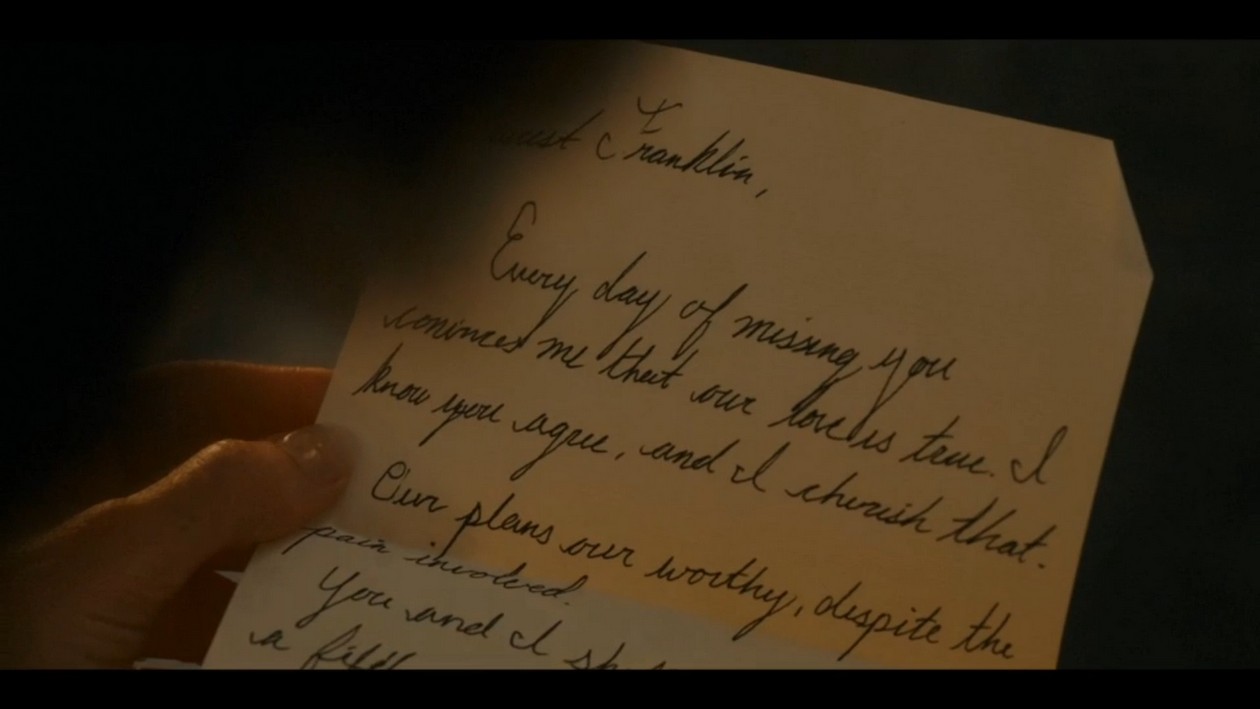 Franklin,
Every day of missing you
convinces me that our love is true. I
know you agree, and I cherish that.
Our plans our worthy, despite the
pain involved.
You and I
a